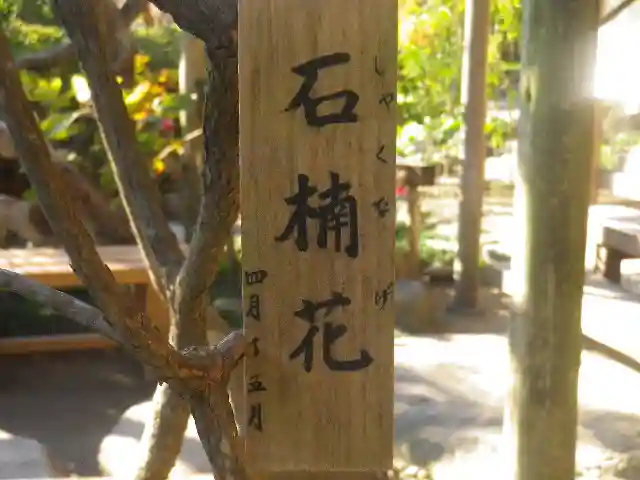 しゃくなげ
石楠花
四月〜五月